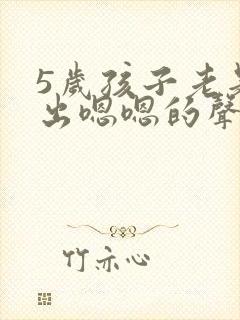 5歲孩子老是
出嗯嗯的聲
竹亦心